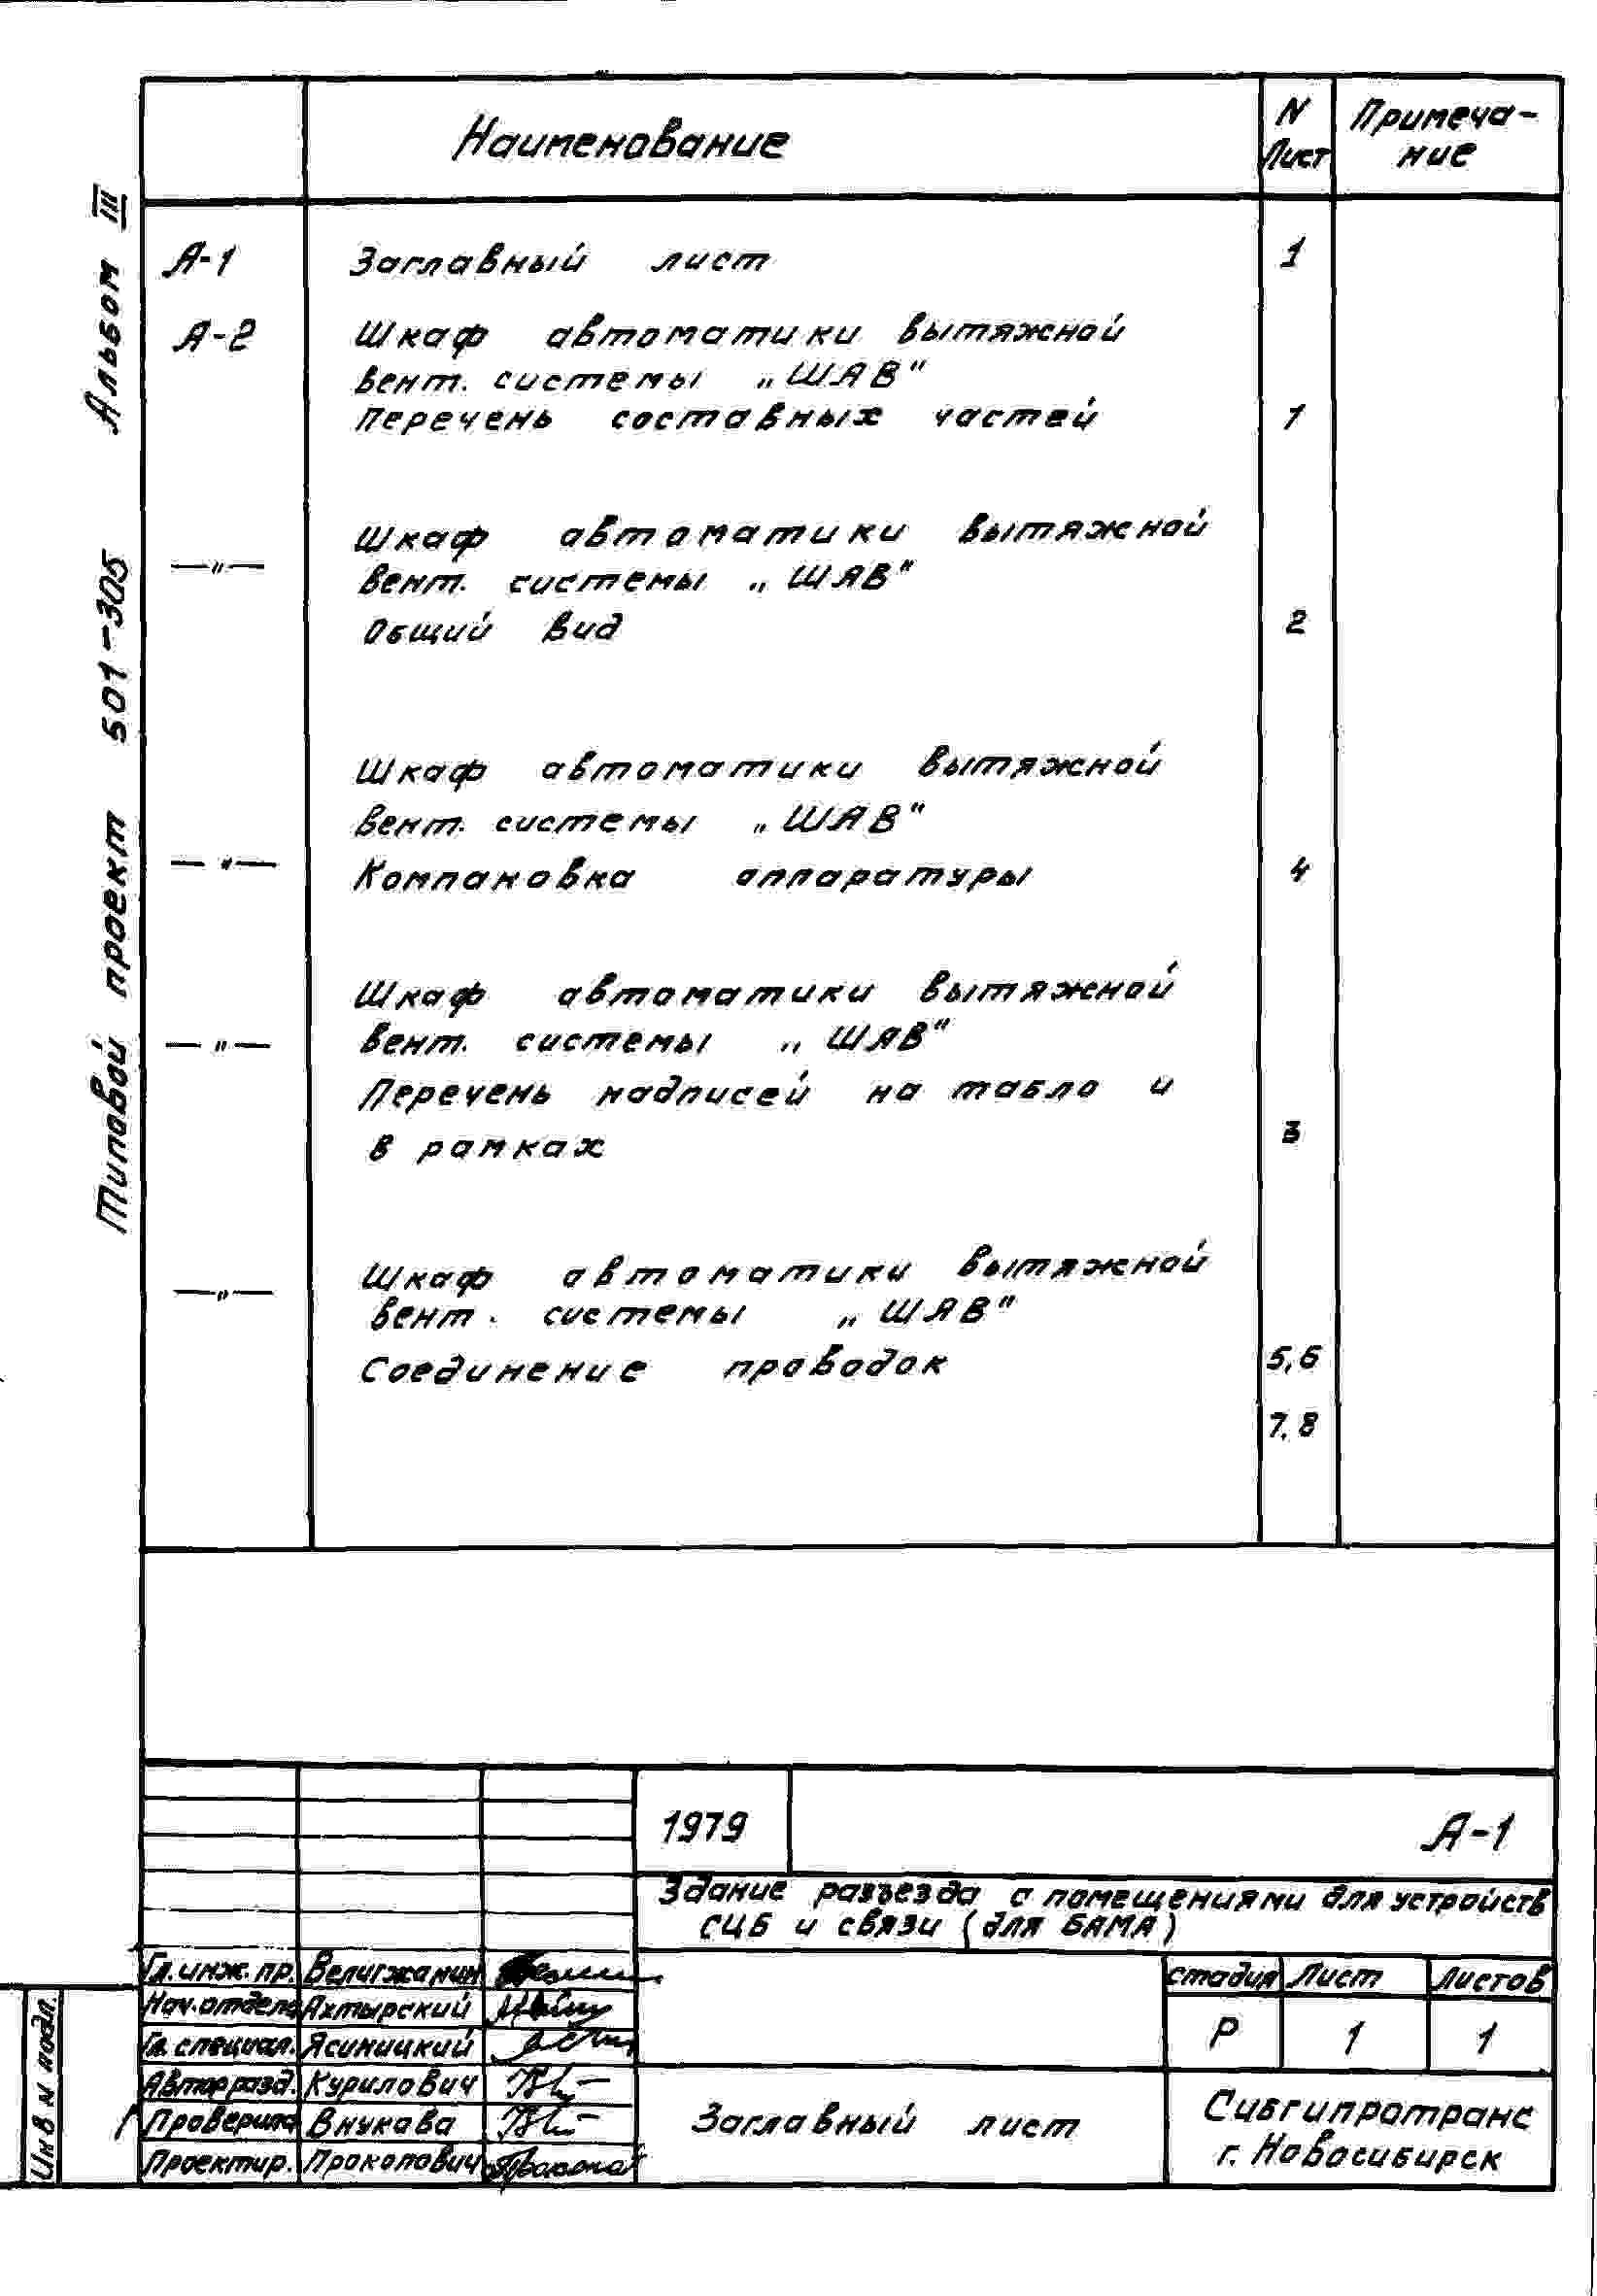 Типовой проект 501-305 Альбом III
Наименование
N Лист
Примеча-
ние
А-1 Заглавный лист 1
А-2 Шкаф автоматики вытяжной
вент. системы „ШАВ"
Перечень составных частей 1
Шкаф автоматики вытяжной
—"— вент. системы „ШАВ"
Общий вид 2
Шкаф автоматики вытяжной
вент. системы „ШАВ"
—"— Компановка аппаратуры 4
Шкаф автоматики вытяжной
—"— вент. системы „ШАВ"
Перечень надписей на табло и
в рамках 3
Шкаф автоматики вытяжной
—"— вент. системы „ШАВ"
Соединение проводок 5,6
7,8
1979 А-1
Здание разъезда с помещениями для устройств
СЦБ и связи (для БАМА)
Гл. инж. пр. Велигжанин
Нач. отдела Ахтырский
Гл. специал. Ясиницкий
Автор разд. Курилович
Проверила Внукова
Проектир. Прокопович
стадия Лист Листов
Р 1 1
Заглавный лист
Сибгипротранс
г. Новосибирск
Инв N подл.